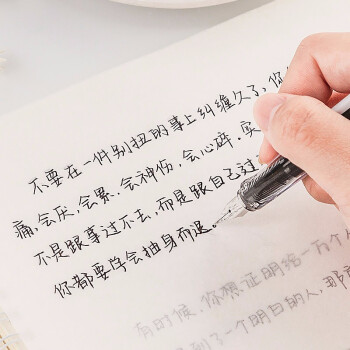 不要在一件别扭的事上纠缠久了，你
痛，会厌，会累，会神伤，会心碎。实
不是跟事过不去，而是跟自己过
你都要学会抽身而退。
有时候，你想证明给一万个人
到了一个明白的人，那